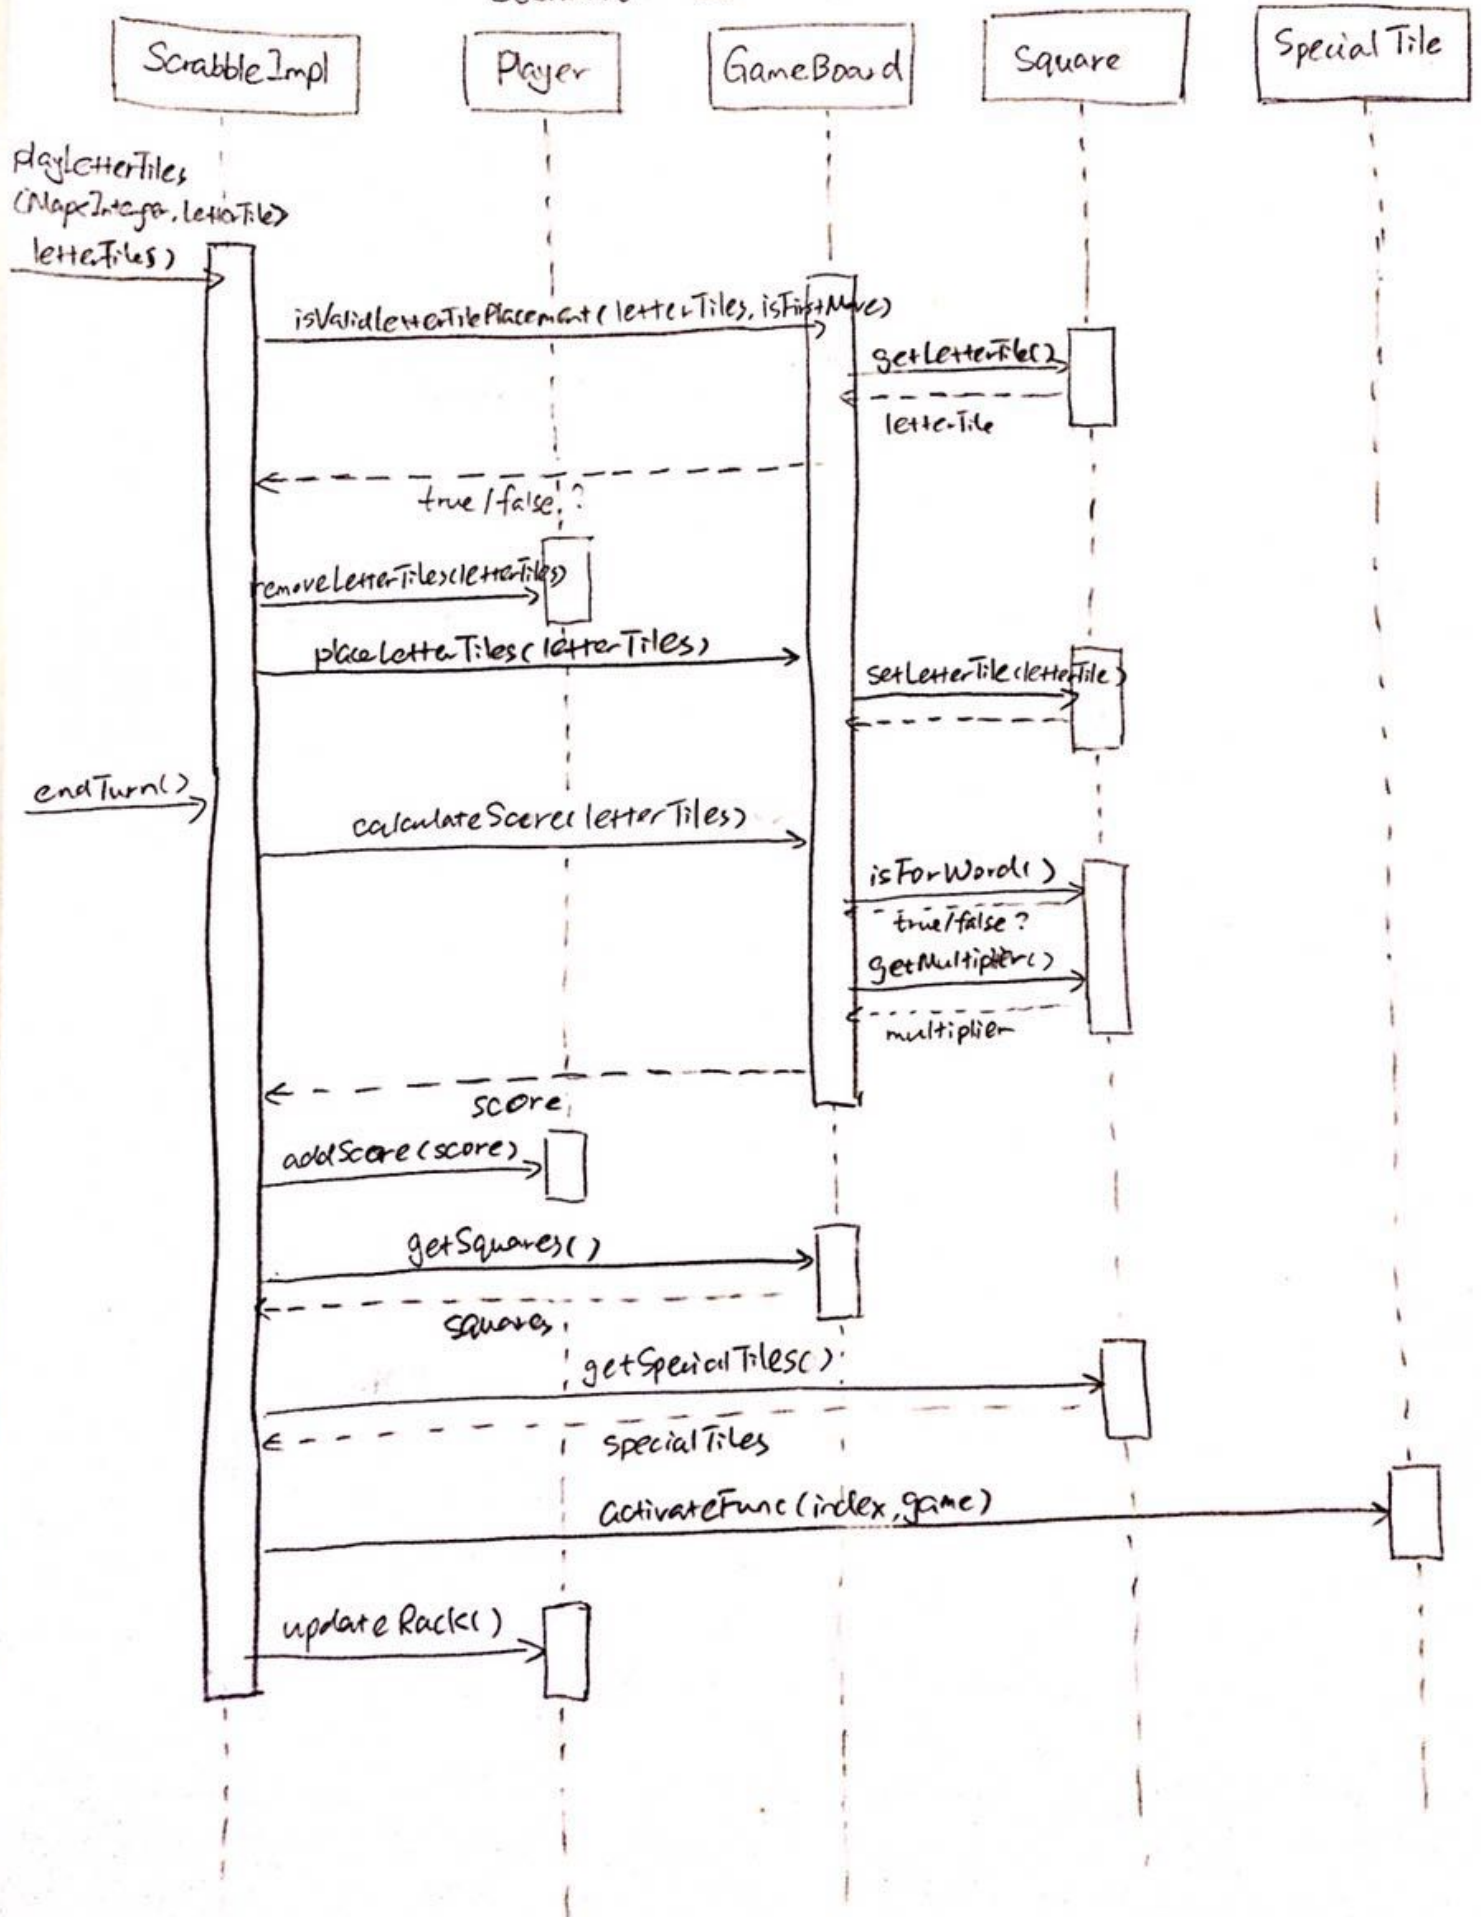 ScrabbleImpl
Player
GameBoard
Square
Special Tile
playLetterTiles
(Map<Integer, LetterTile>
letterTiles)
isValidLetterTilePlacement(letterTiles, isFirstMove)
getLetterTile()
letterTile
true/false?
removeLetterTiles(letterTiles)
placeLetterTiles(letterTiles)
setLetterTile(letterTile)
endTurn()
calculateScore(letterTiles)
isForWord()
true/false?
getMultiplier()
multiplier
score
addScore(score)
getSquares()
squares
getSpecialTiles()
specialTiles
activateFunc(index, game)
updateRack()